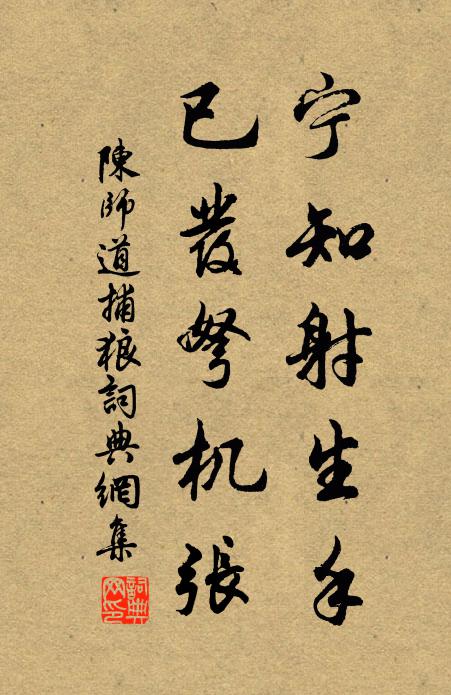 宁知射生手
已發弩机張
陳師道捕狼詞典網集
詞典网印